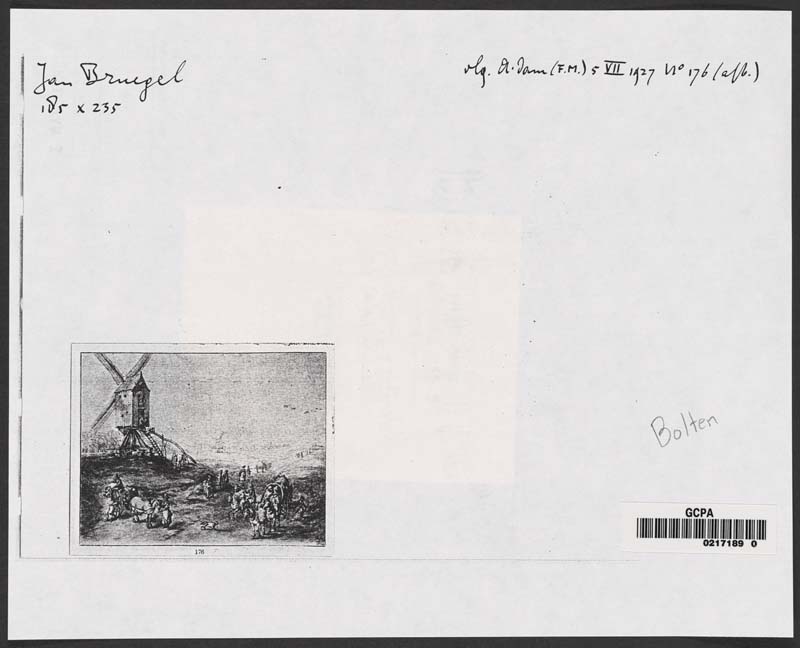 Jan Bruegel
185 x 235
vlg. A.dam (F.M.) 5 VII 1927 No 176 (afb.)
Bolten
GCPA
0217189 0
176